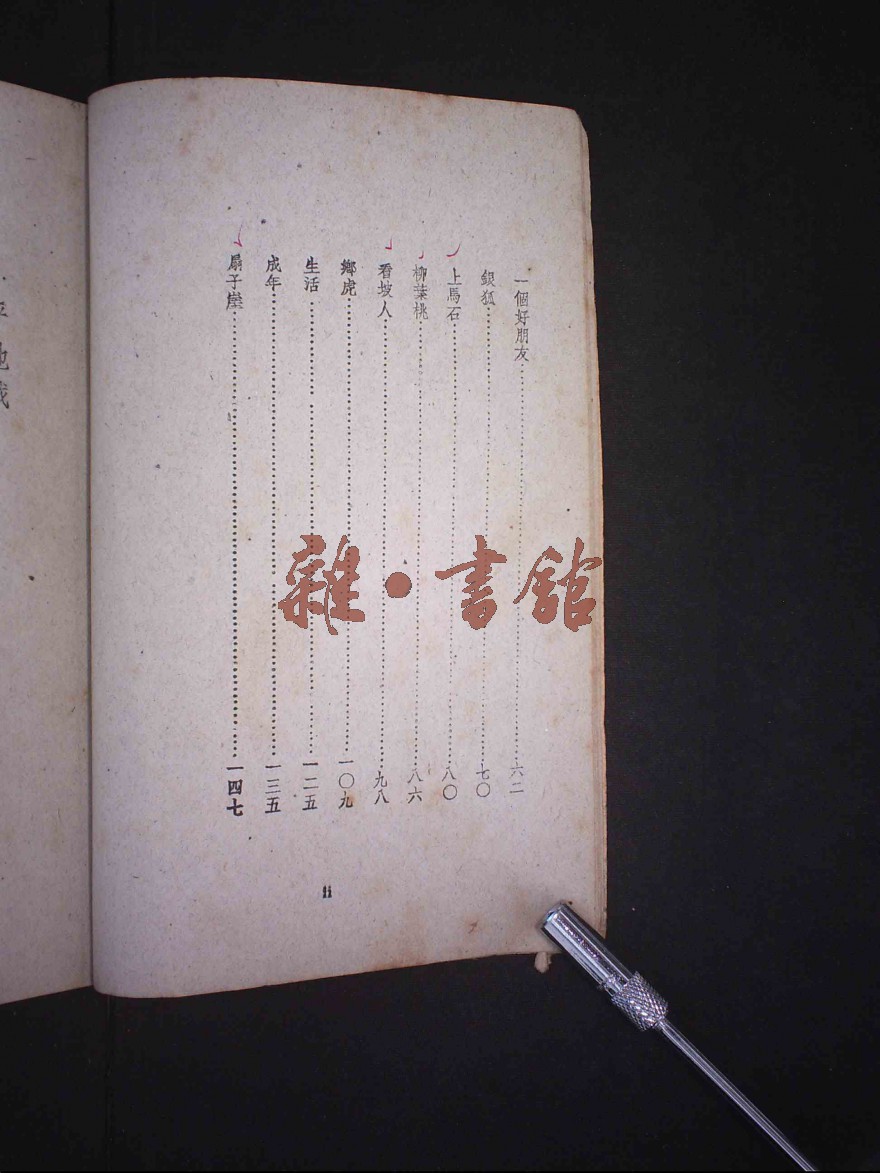 一個好朋友……六二
銀狐……七〇
上馬石……八〇
柳葉桃……八六
看坡人……九八
鄉虎……一〇九
生活……一二五
成年……一三五
扇子崖……一四七
ii
雜·書館